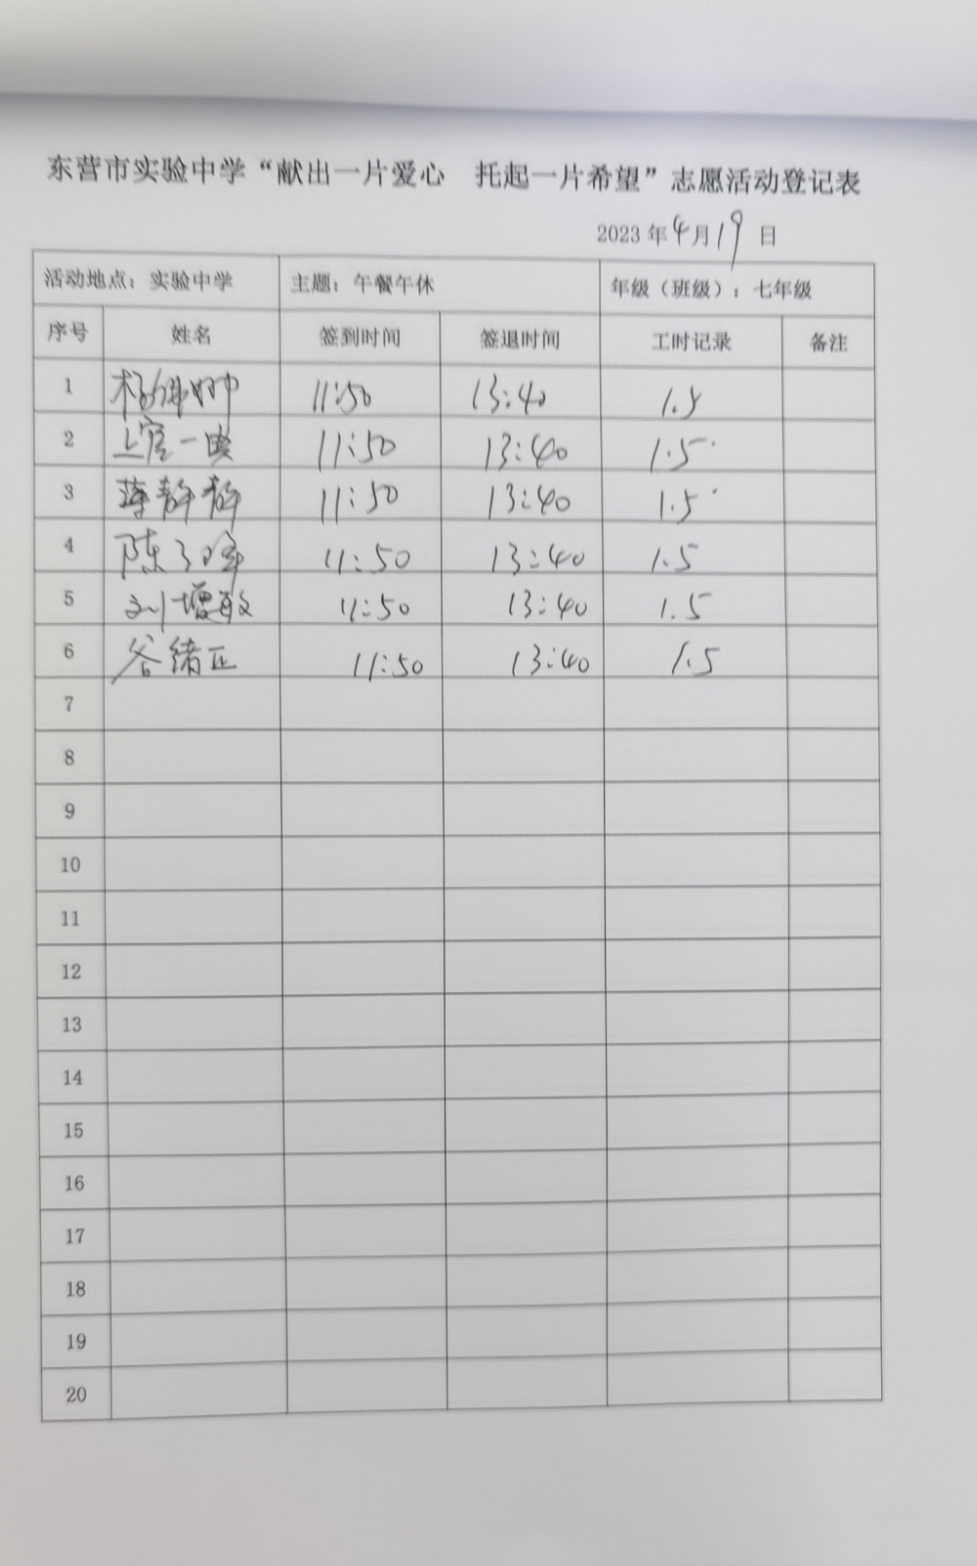 东营市实验中学“献出一片爱心 托起一片希望”志愿活动登记表
2023 年 4 月 19 日
活动地点：实验中学 主题：午餐午休 年级（班级）：七年级
序号 姓名 签到时间 签退时间 工时记录 备注
1 杨 11:50 13:40 1.5
2 上官一典 11:50 13:40 1.5
3 薄静静 11:50 13:40 1.5
4 陈 11:50 13:40 1.5
5 刘增敏 11:50 13:40 1.5
6 谷绪正 11:50 13:40 1.5
7
8
9
10
11
12
13
14
15
16
17
18
19
20